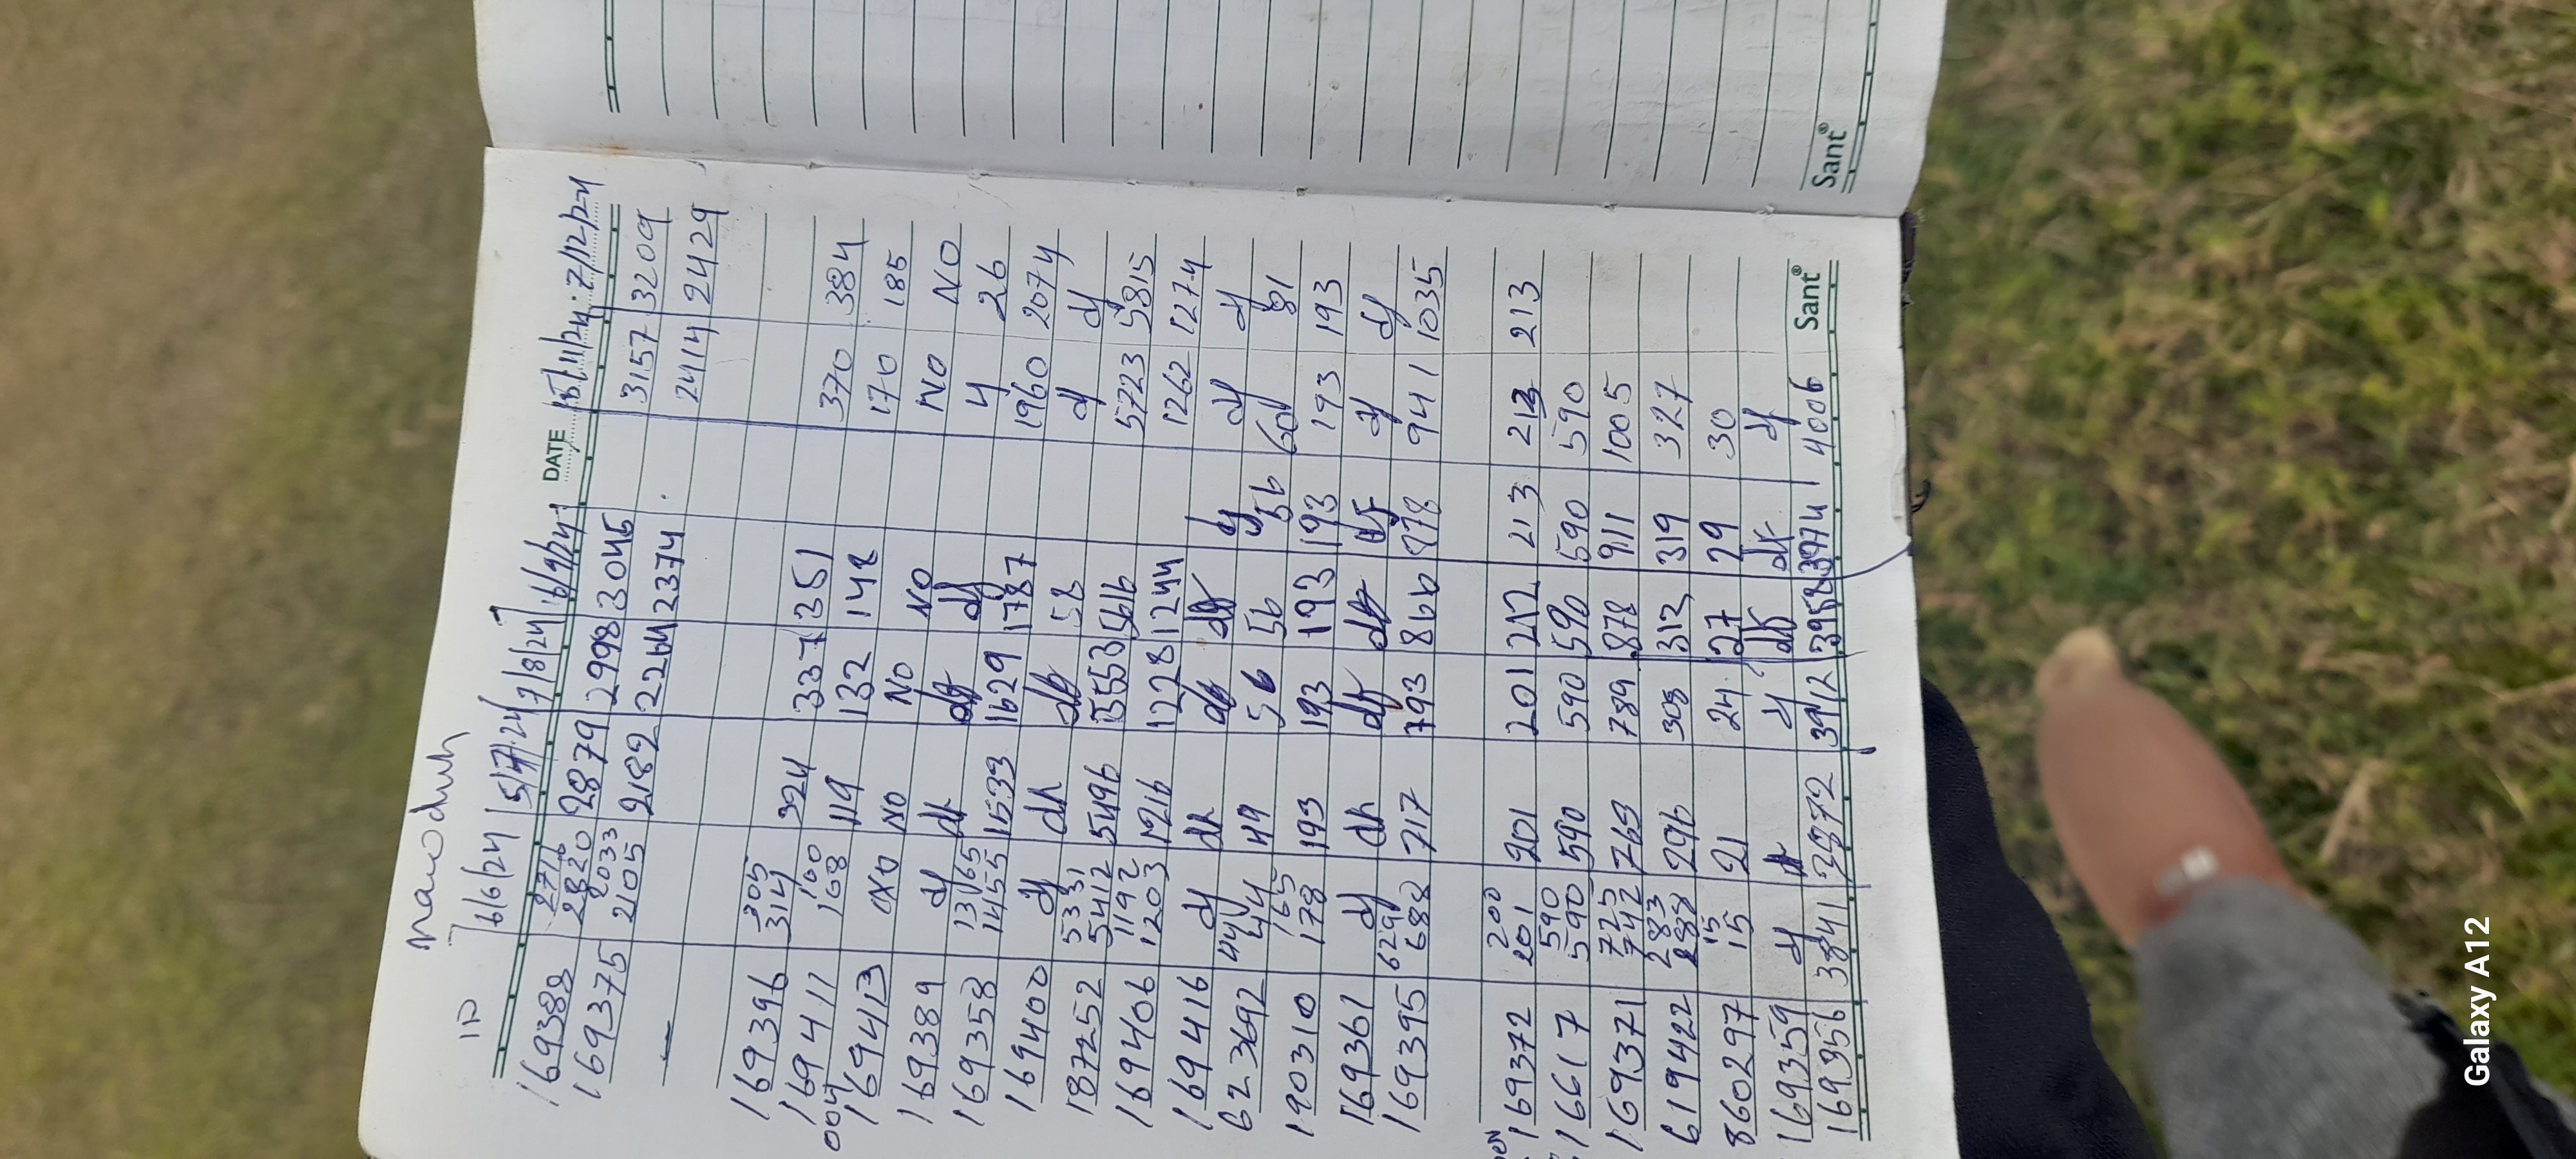 DATE
6/6/24 5/7/24 7/8/24 6/9/24 15/11/24 7/12/24
2716
169388 2820 2879 2998 3045 3157 3209
2033
169375 2105 2182 2264 2374 2414 2429
305
169396 314 324 337 351 370 384
160
169411 168 119 132 148 170 185
004
169413 NO NO NO NO NO
169389 df dr df df 4 26
1365
169358 1455 1533 1629 1787 1960 2074
169400 df dr df 58 df df
5331
187252 5412 5496 5553 5616 5723 5815
1192
169406 1203 1216 1228 1244 1262 1274
169416 df dr df df df df df
44
623692 44 49 56 56 56 60 81
165
190310 178 193 193 193 193 193 193
169361 df dr df df df df df
629
169395 688 717 793 866 878 941 1035
200
169372 201 201 201 212 213 213 213
590
16617 590 590 590 590 590 590
725
169371 742 763 789 878 911 1005
283
619422 288 296 308 312 319 327
15
860297 15 21 24 27 29 30
169359 df df df df df
169356 3841 3872 3912 3958 3974 4006
Sant®
Sant®
Galaxy A12